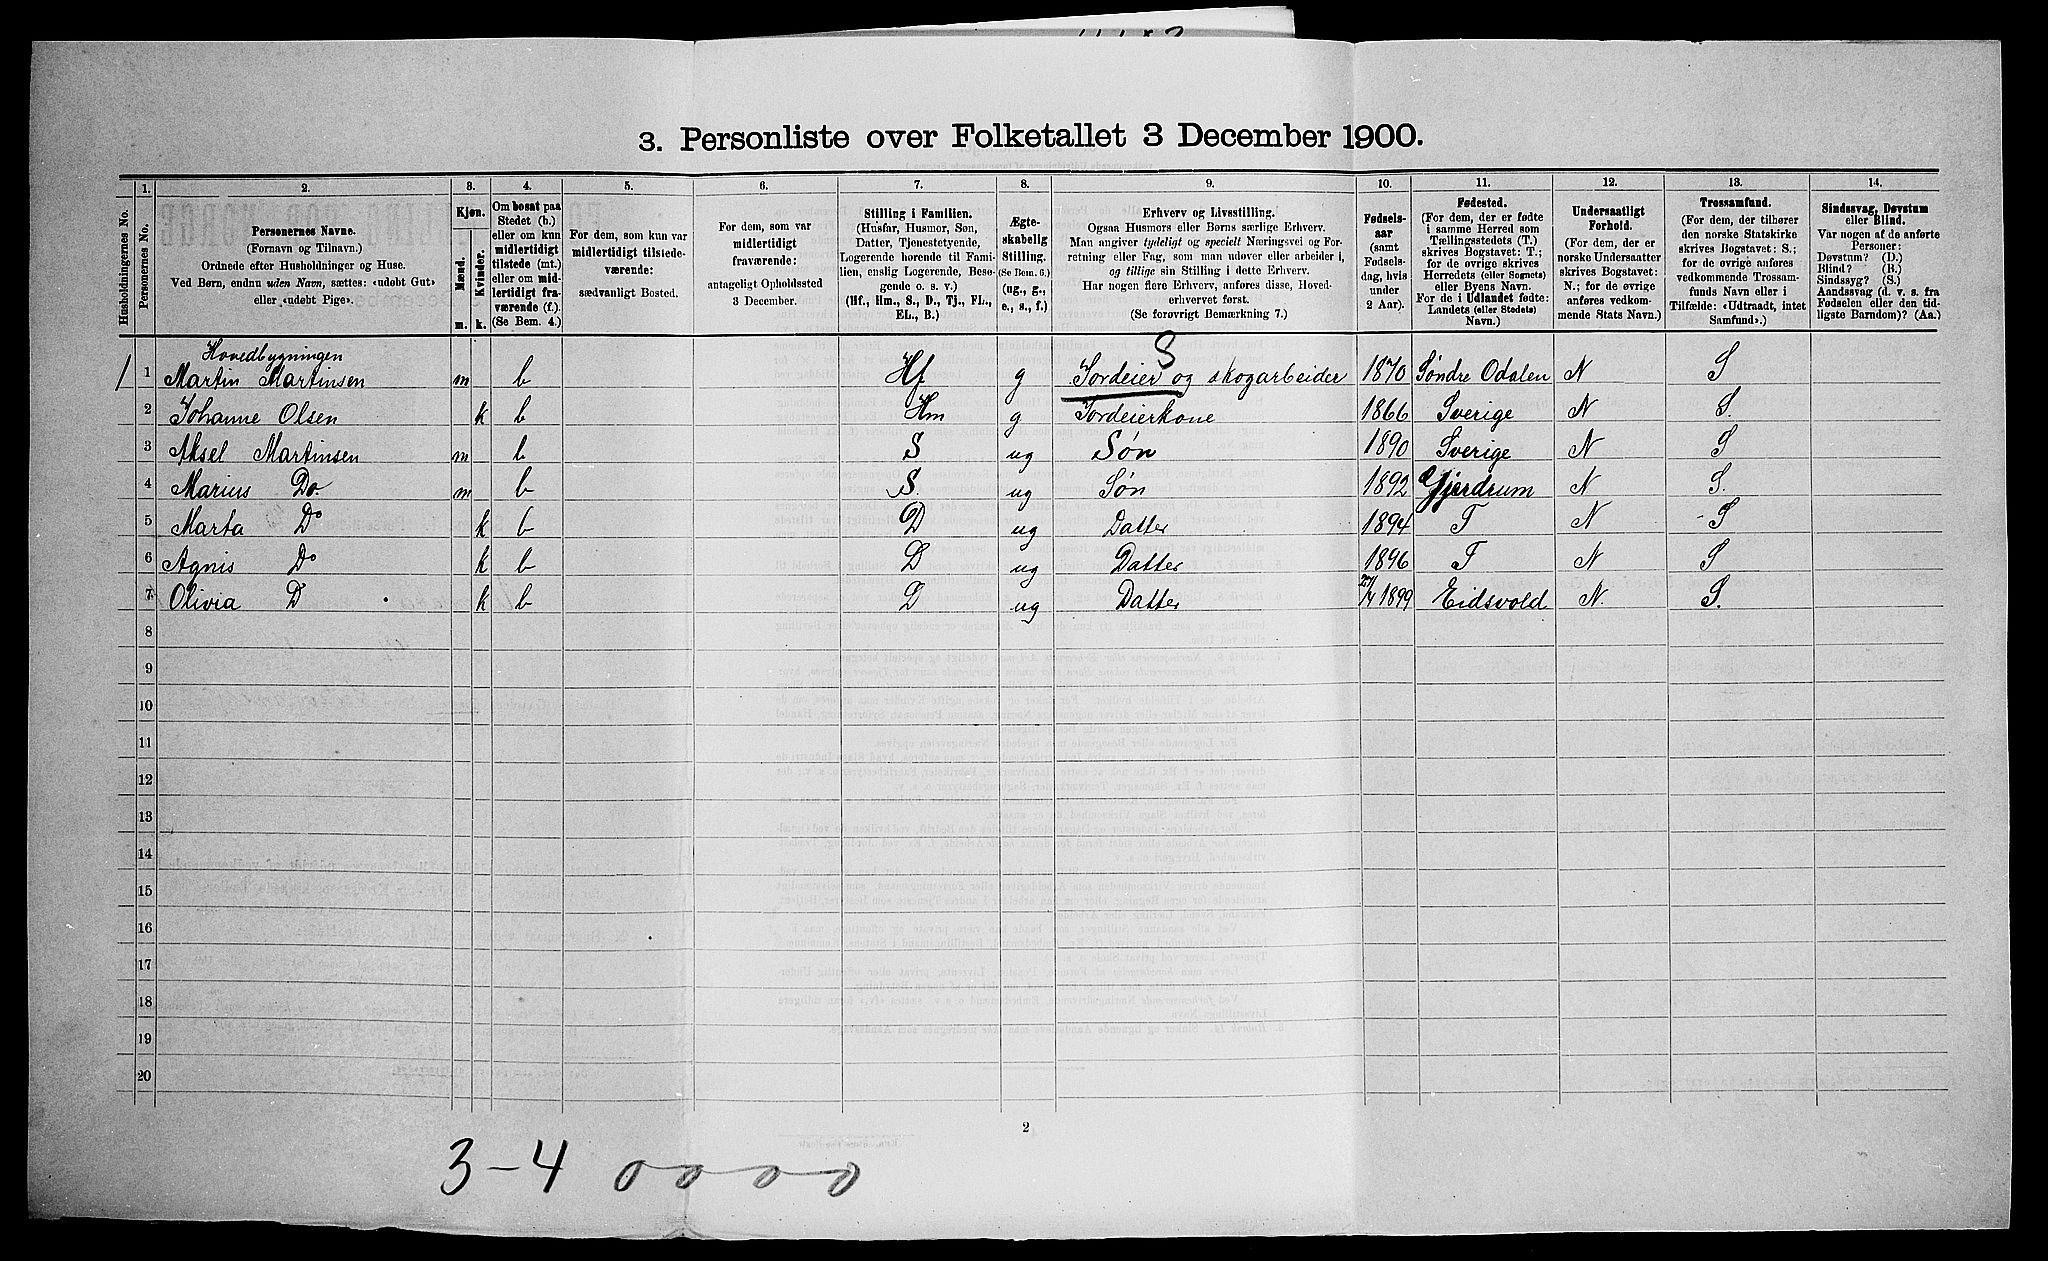 3. Personliste over Folketallet 3 December 1900.
1. 2. 3. 4. 5. 6. 7. 8. 9. 10. 11. 12. 13. 14.
Husholdningernes No.
Personernes No.
Personernes Navne.
(Fornavn og Tilnavn.)
Ordnede efter Husholdninger og Huse.
Ved Børn, endnu uden Navn, sættes: «udøbt Gut»
eller «udøbt Pige».
Kjøn.
Mænd.
Kvinder.
m. k.
Om bosat paa
Stedet (b.)
eller om kun
midlertidigt
tilstede (mt.)
eller om mid-
lertidigt fra-
værende (f.)
(Se Bem. 4.)
For dem, som kun var
midlertidigt tilstede-
værende:
sædvanligt Bosted.
For dem, som var
midlertidigt
fraværende:
antageligt Opholdssted
3 December.
Stilling i Familien.
(Husfar, Husmor, Søn,
Datter, Tjenestetyende,
Logerende hørende til Fami-
lien, enslig Logerende, Besø-
gende o. s. v.)
(Hf., Hm., S., D., Tj., FL.,
EL., B.)
Ægte-
skabelig
Stilling.
(Se Bem. 6.)
(ug., g.,
e., s., f.)
Erhverv og Livsstilling.
Ogsaa Husmors eller Børns særlige Erhverv.
Man angiver tydeligt og specielt Næringsvei og For-
retning eller Fag, som man udøver eller arbeider i,
og tillige sin Stilling i dette Erhverv.
Har nogen flere Erhverv, anføres disse, Hoved-
erhvervet først.
(Se forøvrigt Bemærkning 7.)
Fødsels-
aar
(samt
Fødsels-
dag, hvis
under
2 Aar).
Fødested.
(For dem, der er fødte
i samme Herred som
Tællingsstedets (T.)
skrives Bogstavet: T.;
for de øvrige skrives
Herredets (eller Sognets)
eller Byens Navn.
For de i Udlandet fødte:
Landets (eller Stedets)
Navn.)
Undersaatligt
Forhold.
(For dem, der er
norske Undersaatter
skrives Bogstavet:
N.; for de øvrige
anføres vedkom-
mende Stats Navn.)
Trossamfund.
(For dem, der tilhører
den norske Statskirke
skrives Bogstavet: S.;
for de øvrige anføres
vedkommende Trossam-
funds Navn eller i
Tilfælde: «Udtraadt, intet
Samfund».)
Sindssvag, Døvstum
eller Blind.
Var nogen af de anførte
Personer:
Døvstum? (D.)
Blind? (B.)
Sindssyg? (S.)
Aandssvag (d. v. s. fra
Fødselen eller den tid-
ligste Barndom)? (Aa.)
Hovedbygningen S
1 1 Martin Martinsen m b Hf g Jordeier og skogarbeider 1870 Søndre Odalen N S
2 Johanne Olsen k b Hm g Jordeierkone 1866 Sverige N S.
3 Aksel Martinsen m b S ug Søn 1890 Sverige N S
4 Marius Do. m b S. ug Søn 1892 Gjerdrum N S.
5 Marta Do k b D ug Datter 1894 T N S
6 Agnis Do k b D ug Datter 1896 T N S
7 Olivia D k b D ug Datter 27/4 1899 Eidsvold N. S.
8
9
10
11
12
13
14
15
16
17
18
19
20
2
3-4 0 0 0 0